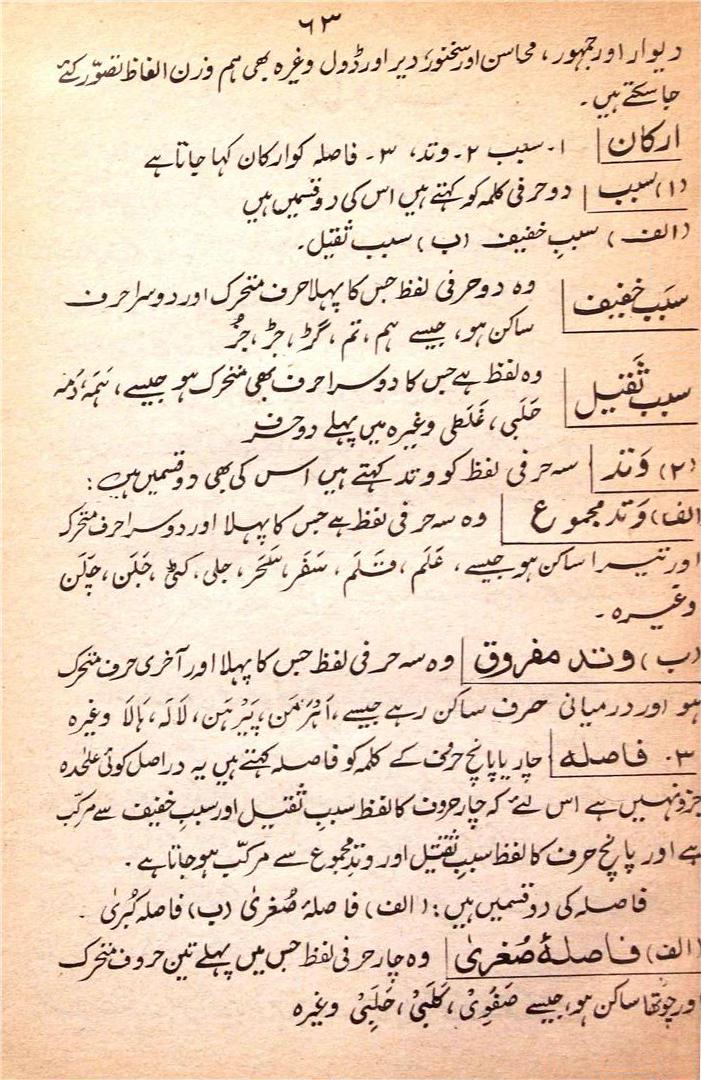 ۶۳
دیوار اور جمہور، محاسن اور سخنور، دیر اور ڈول وغیرہ بھی ہم وزن الفاظ تصوّر کئے
جا سکتے ہیں۔
ارکان ۱۔ سبب ۲۔ وتد، ۳۔ فاصلہ کو ارکان کہا جاتا ہے
(۱) سبب دو حرفی کلمہ کو کہتے ہیں اس کی دو قسمیں ہیں
(الف) سببِ خفیف (ب) سبب ثقیل۔
سبَبِ خفیف وہ دو حرفی لفظ جس کا پہلا حرف متحرک اور دوسرا حرف
ساکن ہو، جیسے ہم، تم، گڑ، جڑ، جُز
سبب ثَقیل وہ لفظ ہے جس کا دوسرا حرف بھی متحرک ہو جیسے، ہَمَہ، دَمَہ
حَلَبی، غَلَطی وغیرہ میں پہلے دو حرف
(۲) وَتد سہ حرفی لفظ کو وتد کہتے ہیں اس کی بھی دو قسمیں ہیں:
(الف) وَتد مجموع وہ سہ حرفی لفظ ہے جس کا پہلا اور دوسرا حرف متحرک
اور تیسرا ساکن ہو جیسے، عَلَم، قَلَم، سَفَر، سَحَر، جلی، کئی، جَلَن، چَلَن
وغیرہ۔
(ب) وتد مفروق وہ سہ حرفی لفظ جس کا پہلا اور آخری حرف متحرک
ہو اور درمیانی حرف ساکن رہے جیسے، اَہْرَمَن، پَیْرَہَن، لَالَہ، ہَالَا وغیرہ
۳۔ فاصلہ چار یا پانچ حرفی کے کلمہ کو فاصلہ کہتے ہیں یہ دراصل کوئی علٰحدہ
جزو نہیں ہے اس لئے کہ چار حروف کا لفظ سببِ ثقیل اور سببِ خفیف سے مرکّب
ہے اور پانچ حرف کا لفظ سببِ ثقیل اور وتدِ مجموع سے مرکّب ہو جاتا ہے۔
فاصلہ کی دو قسمیں ہیں: (الف) فاصلۂ صُغریٰ (ب) فاصلہ کُبریٰ۔
(الف) فاصلۂ صُغریٰ وہ چار حرفی لفظ جس میں پہلے تین حروف متحرک
اور چوتھا ساکن ہو، جیسے صَفَوِیْ، کَلَبِیْ، حَلَبِیْ وغیرہ